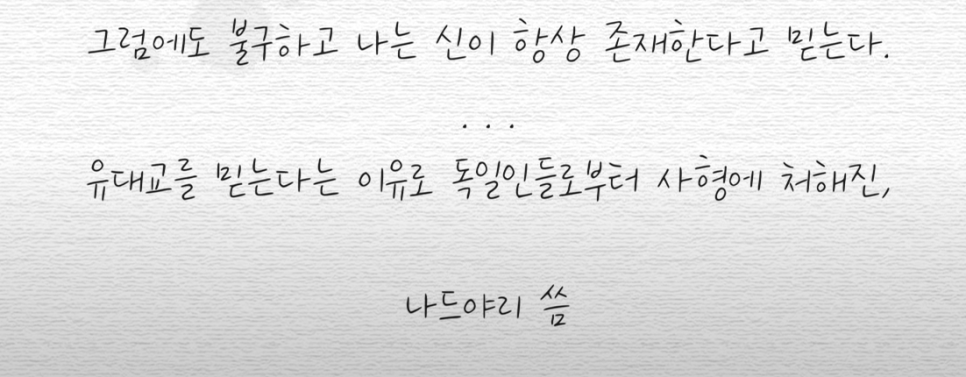 그럼에도 불구하고 나는 신이 항상 존재한다고 믿는다.
...
유대교를 믿는다는 이유로 독일인들로부터 사형에 처해진,
나드야리 씀